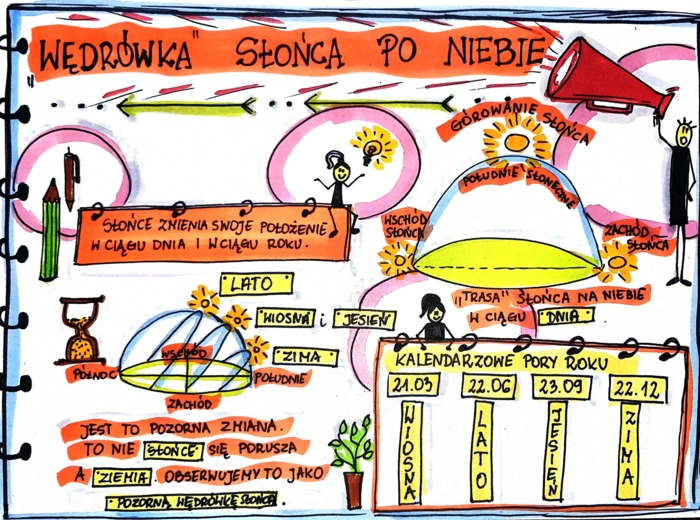 "WĘDRÓWKA" SŁOŃCA PO NIEBIE
GÓROWANIE SŁOŃCA
POŁUDNIE SŁONECZNE
WSCHÓD
SŁOŃCA
ZACHÓD
SŁOŃCA
SŁOŃCE ZMIENIA SWOJE POŁOŻENIE
W CIĄGU DNIA I W CIĄGU ROKU.
"TRASA" SŁOŃCA NA NIEBIE
W CIĄGU DNIA
LATO
WIOSNA i JESIEŃ
ZIMA
WSCHÓD
PÓŁNOC
POŁUDNIE
ZACHÓD
KALENDARZOWE PORY ROKU
21.03 22.06 23.09 22.12
WIOSNA
LATO
JESIEŃ
ZIMA
JEST TO POZORNA ZMIANA.
TO NIE SŁOŃCE SIĘ PORUSZA
A ZIEMIA. OBSERWUJEMY TO JAKO
POZORNĄ WĘDRÓWKĘ SŁOŃCA.